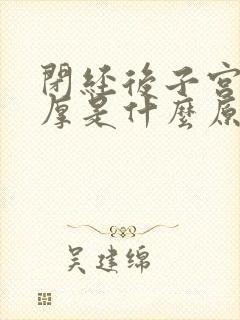 閉經後子宮
厚是什麼原
吴建綿